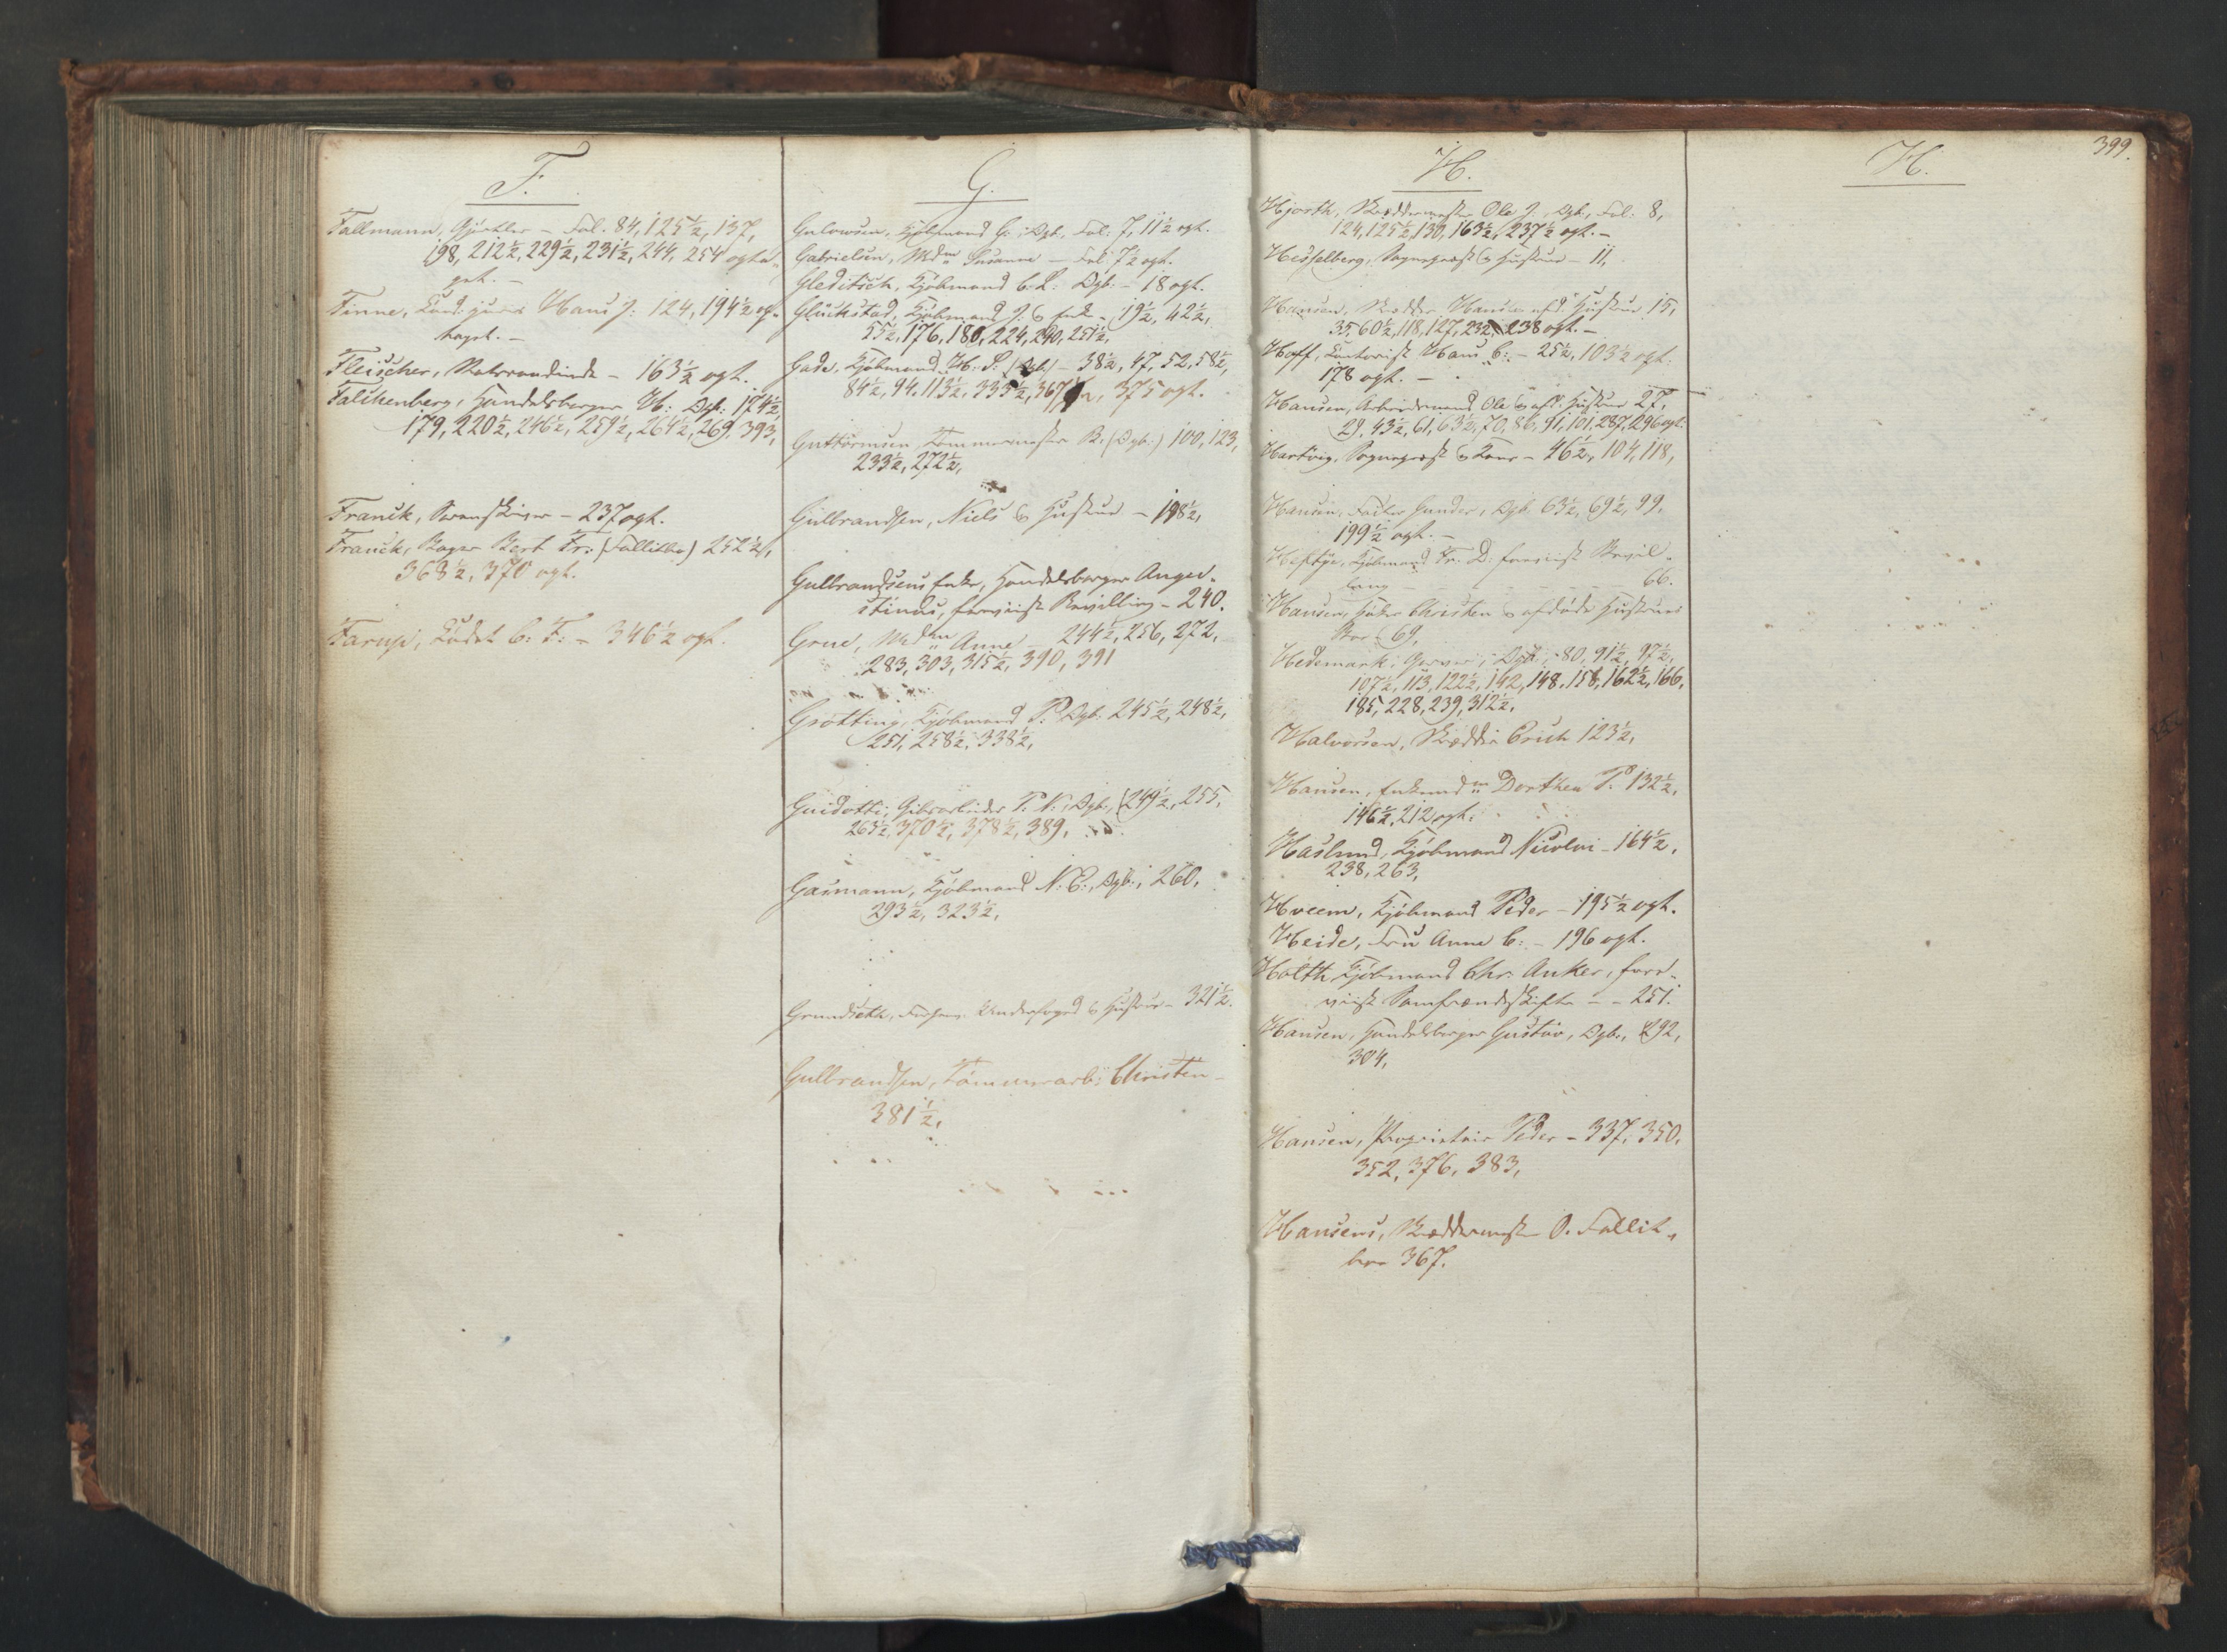 F.
Fallmann, Gjørtler – Fol. 84, 125½, 137,
198, 212½, 229½, 231½, 244, 254 opta-
get. –
Finne, Cand: juris Hans J: 124, 194½ op-
taget. –
Fleischer, Raadmandinde – 163½ opt.
Falchenberg, Handelsborger H: Dgb: 174½
179, 220½, 246½, 259½, 264½, 269, 393,
Franck, Sorenskriver – 237 opt.
Franck, Bager Bert Fr: (Fallitbo) 252½,
368½, 370 opt.
Farup, Cadet C: F: – 346½ opt.
G.
Gulowsen, Kjøbmand G., Dgb., Fol: 7, 11½ opt.
Gabrielsen, Mdm Susanne – Fol: 7½ opt.
Gleditsch, Kjøbmand C. L: Dgb: – 18 opt.
Glückstad, Kjøbmand J. & Enke – 19½, 42½,
55½, 176, 180, 224, 240, 251½,
Gade, Kjøbmand H. P. (Dgb.) – 38½, 47, 52, 58½,
84½, 94, 113½, 335½, 367, 375 opt.
Guttormsen, Tømmermester B. (Dgb.) 100, 123,
233½, 272½,
Gulbrandsen, Niels & Hustrue – 198½,
Gulbrandsens Enke, Handelsborger
Bevilling – 240.
Grue, Anne – 244½, 256, 272,
283, 303, 315½, 390, 391
Grøtting, Kjøbmand P: Dgb: 245½, 248½,
251, 258½, 338½,
Guidotti, P. N., Dgb., 249½, 255,
263½, 370½, 378½, 389,
Gasmann, Kjøbmand N: E:, Dgb., 260,
293½, 323½,
Grundseth, Underfoged & Hustrue – 321½.
Gulbrandsen, Tømmerarb: Christen –
381½,
H.
Hjorth, Skræddermester Ole J., Dgb., Fol: 8,
124, 125½, 130, 163½, 237½ opt. –
Hesselberg, Sognepræst & Hustrue – 11,
Hansen, Skrædder Hans & afd: Hustrue 15,
35, 60½, 118, 127, 232, 238 opt. –
Hoff, Contorist Hans C: – 25½, 103½ opt.
178 opt. –
Hansen, Arbeidsmand Ole & afd: Hustrue 27,
29, 43½, 61, 63½, 70, 86, 91, 101, 287, 296 opt.
Hartvig, Sognepræst & Kone – 46½, 104, 118,
Hansen, Gunder, Dgb. 63½, 69½, 99,
199½ opt. –
Heftye, Kjøbmand Fr. D. Bevil-
ling – 66.
Hansen, Christen & afdøde Hustrues
Boe 69,
Hedemark, Garver, Dgb., 80, 91½, 97½,
107½, 113, 122½, 142, 148, 158, 162½, 166,
185, 228, 239, 312½,
Halvorsen, Skrædder Erich 123½,
Hansen, Enkemdm Dorthea P. 132½,
146½, 212 opt.
Haslund, Kjøbmand Nicolai – 164½,
238, 263,
Hveem, Kjøbmand Peder – 195½ opt.
Heide, Fru Anne C: – 196 opt.
Holth, Kjøbmand Chr: Anker,
Samfrændeskifte – – 251.
Hansen, Handelsborger Gustav, Dgb., 292,
304,
Hansen, Proprietair Peder – 337, 350,
352, 376, 383,
Hansens, Skræddermester O. Fallit-
boe 367.
H.
399.